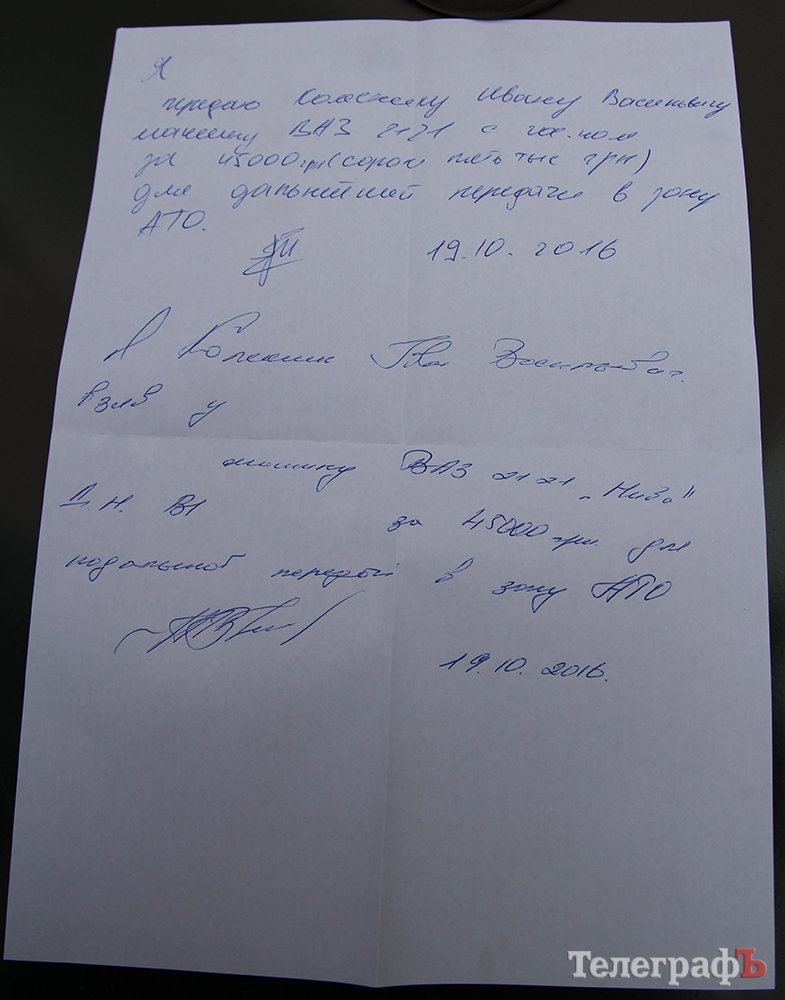 Я
передаю Колеснику Ивану Васильевичу
машину ВАЗ 2121 с гос.ном
за 45000грн(сорок пять тыс грн)
для дальнейшей передачи в зону
АТО.
19.10.2016
Я Колесник Іван Васильович.
взяв у
машину ВАЗ 2121 „Нива"
Д.Н. ВІ за 45000 грн. для
подальшої передачі в зону АТО
19.10.2016.
ТелеграфЪ